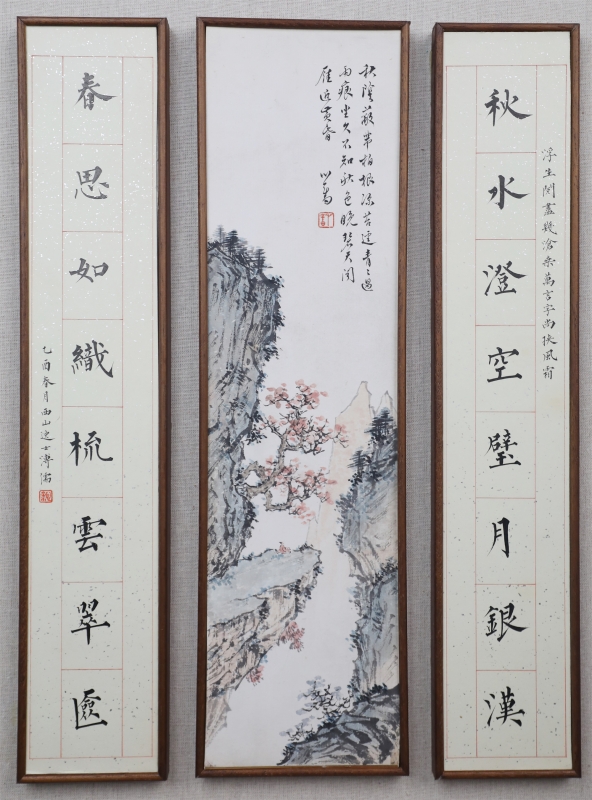 浮生閱盡幾滄桑萬言字尚挾風霜
秋水澄空璧月銀漢
秋陰蔽芾柏根涼苔逕青〻過
雨痕坐久不知秋色晚碧天聞
雁近黃昏 心畬
春思如織梳雲翠匳
乙酉春月西山逸士溥儒